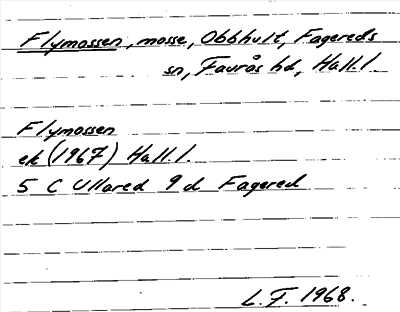 Flymossen, mosse, Obbhult, Fagereds
sn, Faurås hd, Hall.l.
Flymossen
ek (1967) Hall.l.
5 C Ullared 9 d Fagered
L.F. 1968.